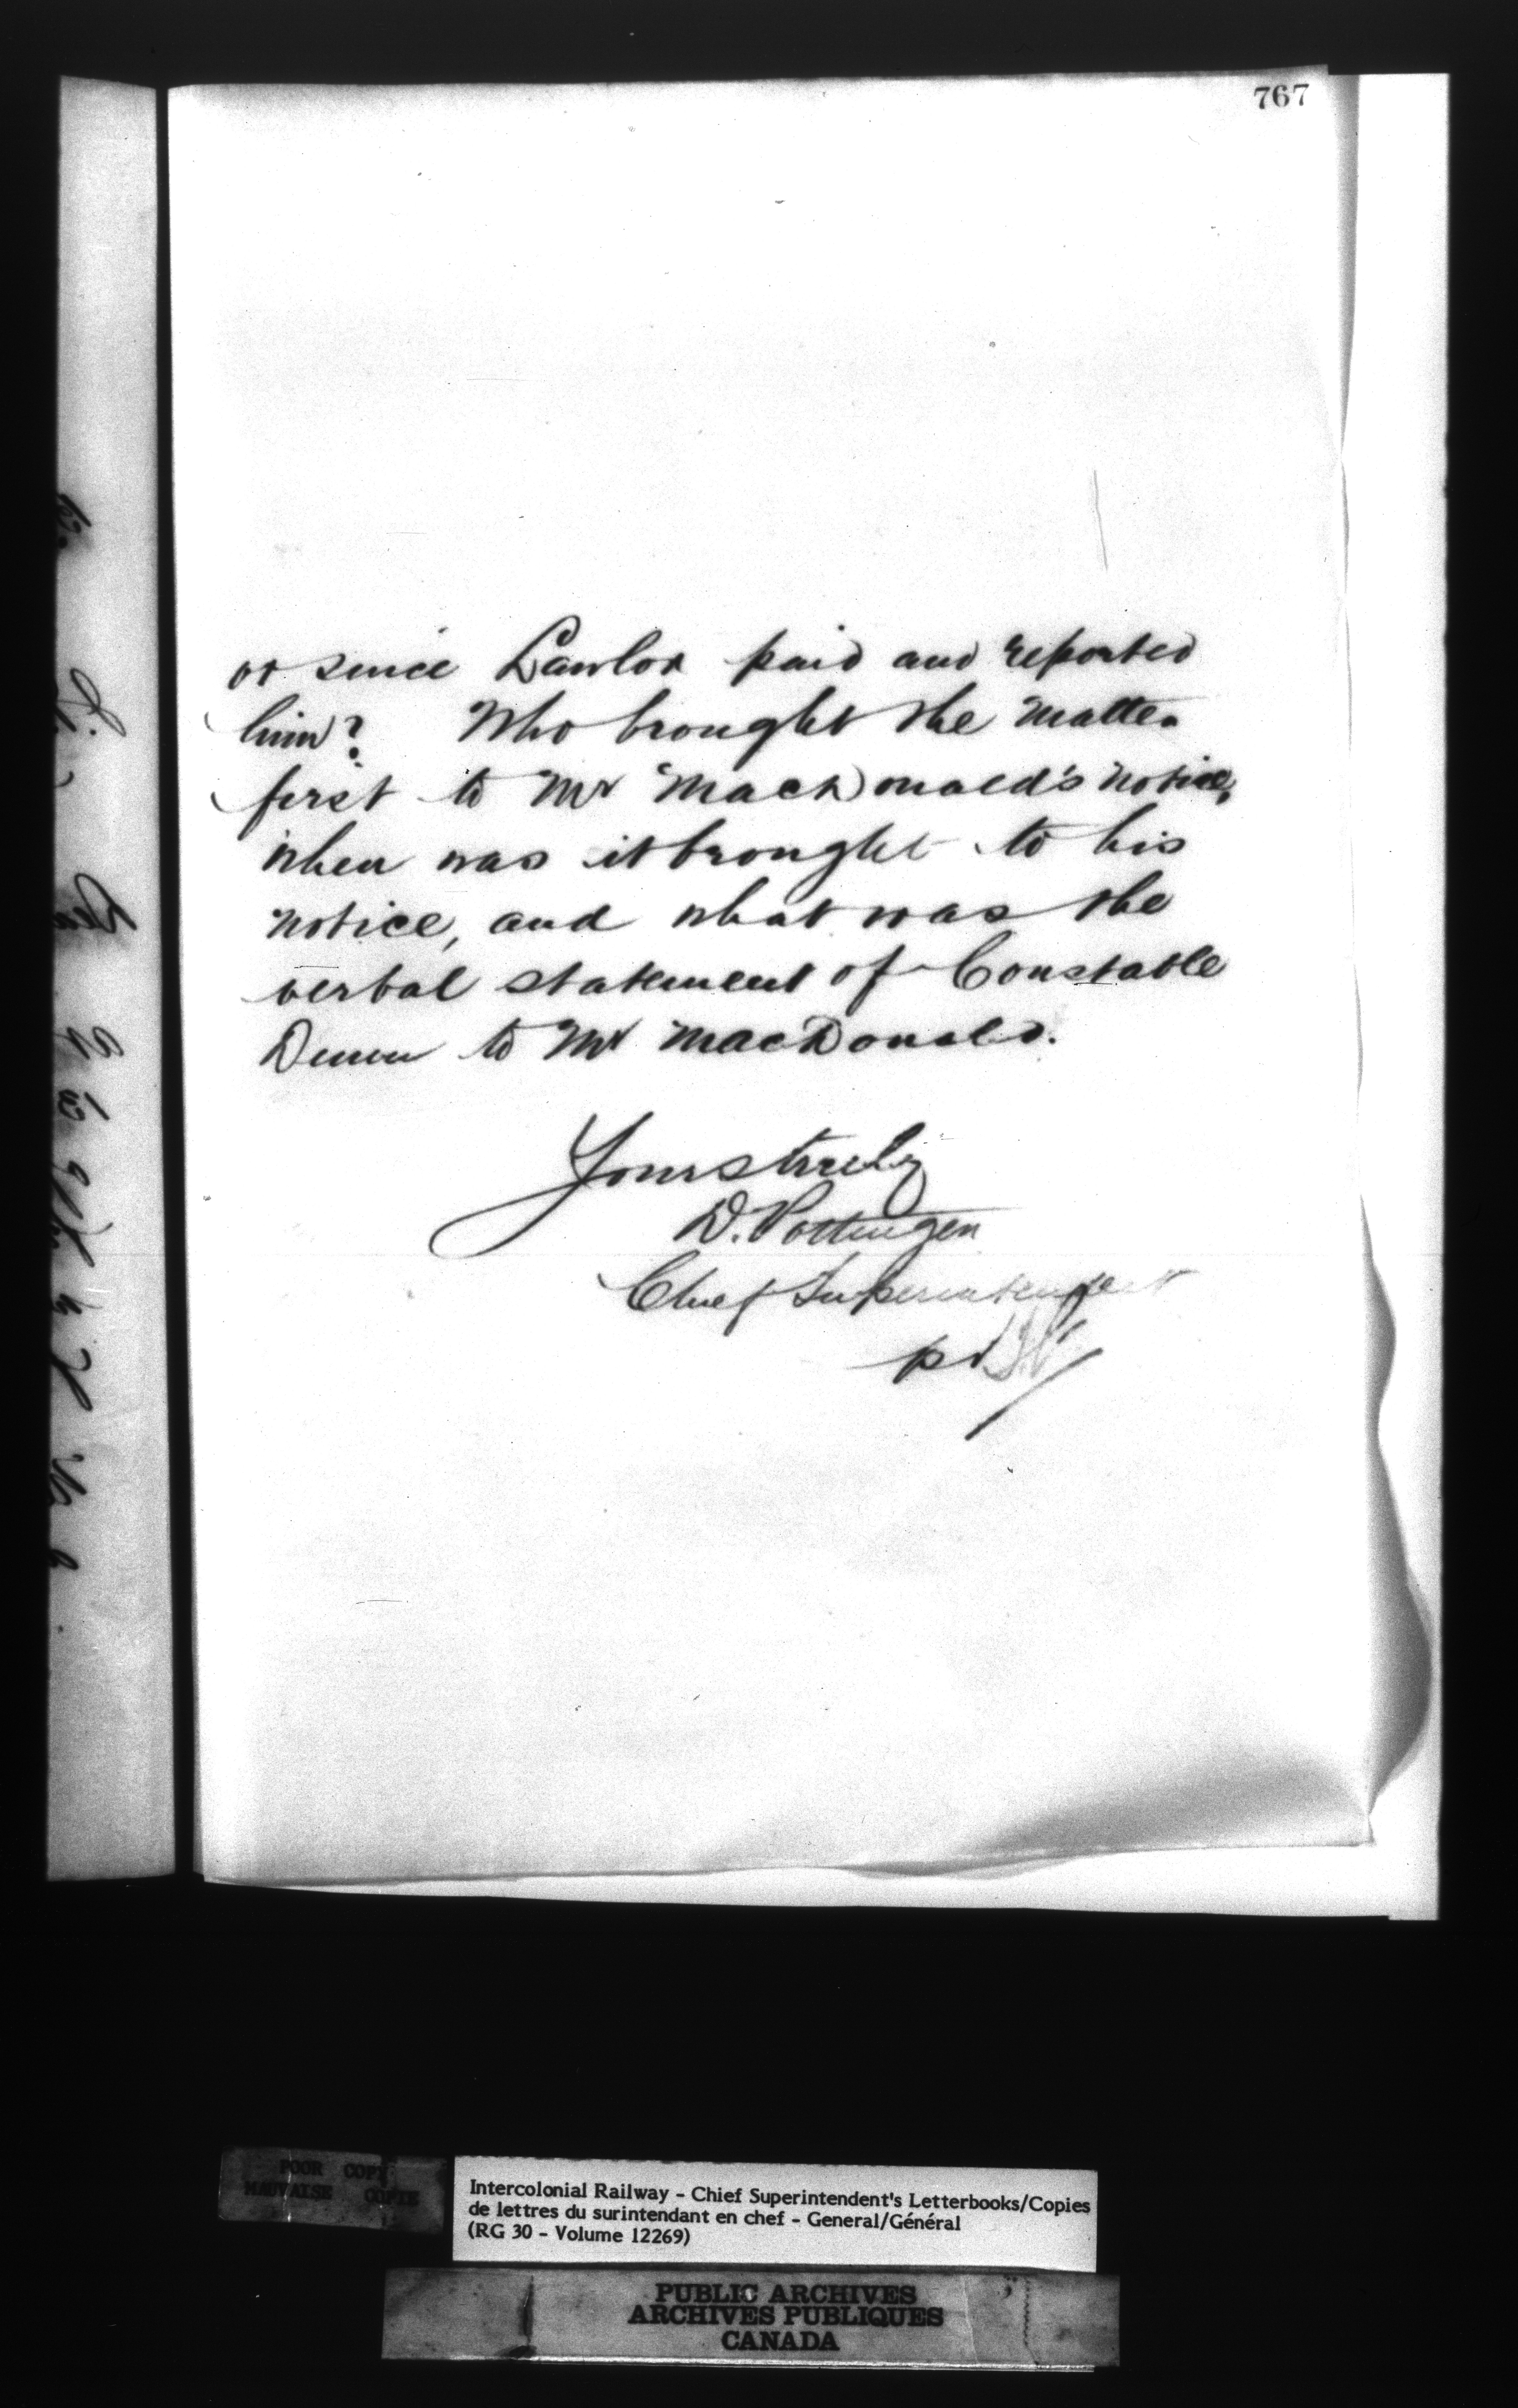 767
or since Lawlor paid and reported
him? Who brought the matter
first to Mr MacDonald's notice,
when was it brought to his
notice, and what was the
verbal statement of Constable
to Mr MacDonald.
Yours truly
D. Pottinger
Chief Superintendent
pr
POOR COPY
MAUVAISE COPIE
Intercolonial Railway - Chief Superintendent's Letterbooks/Copies
de lettres du surintendant en chef - General/Général
(RG 30 - Volume 12269)
PUBLIC ARCHIVES
ARCHIVES PUBLIQUES
CANADA